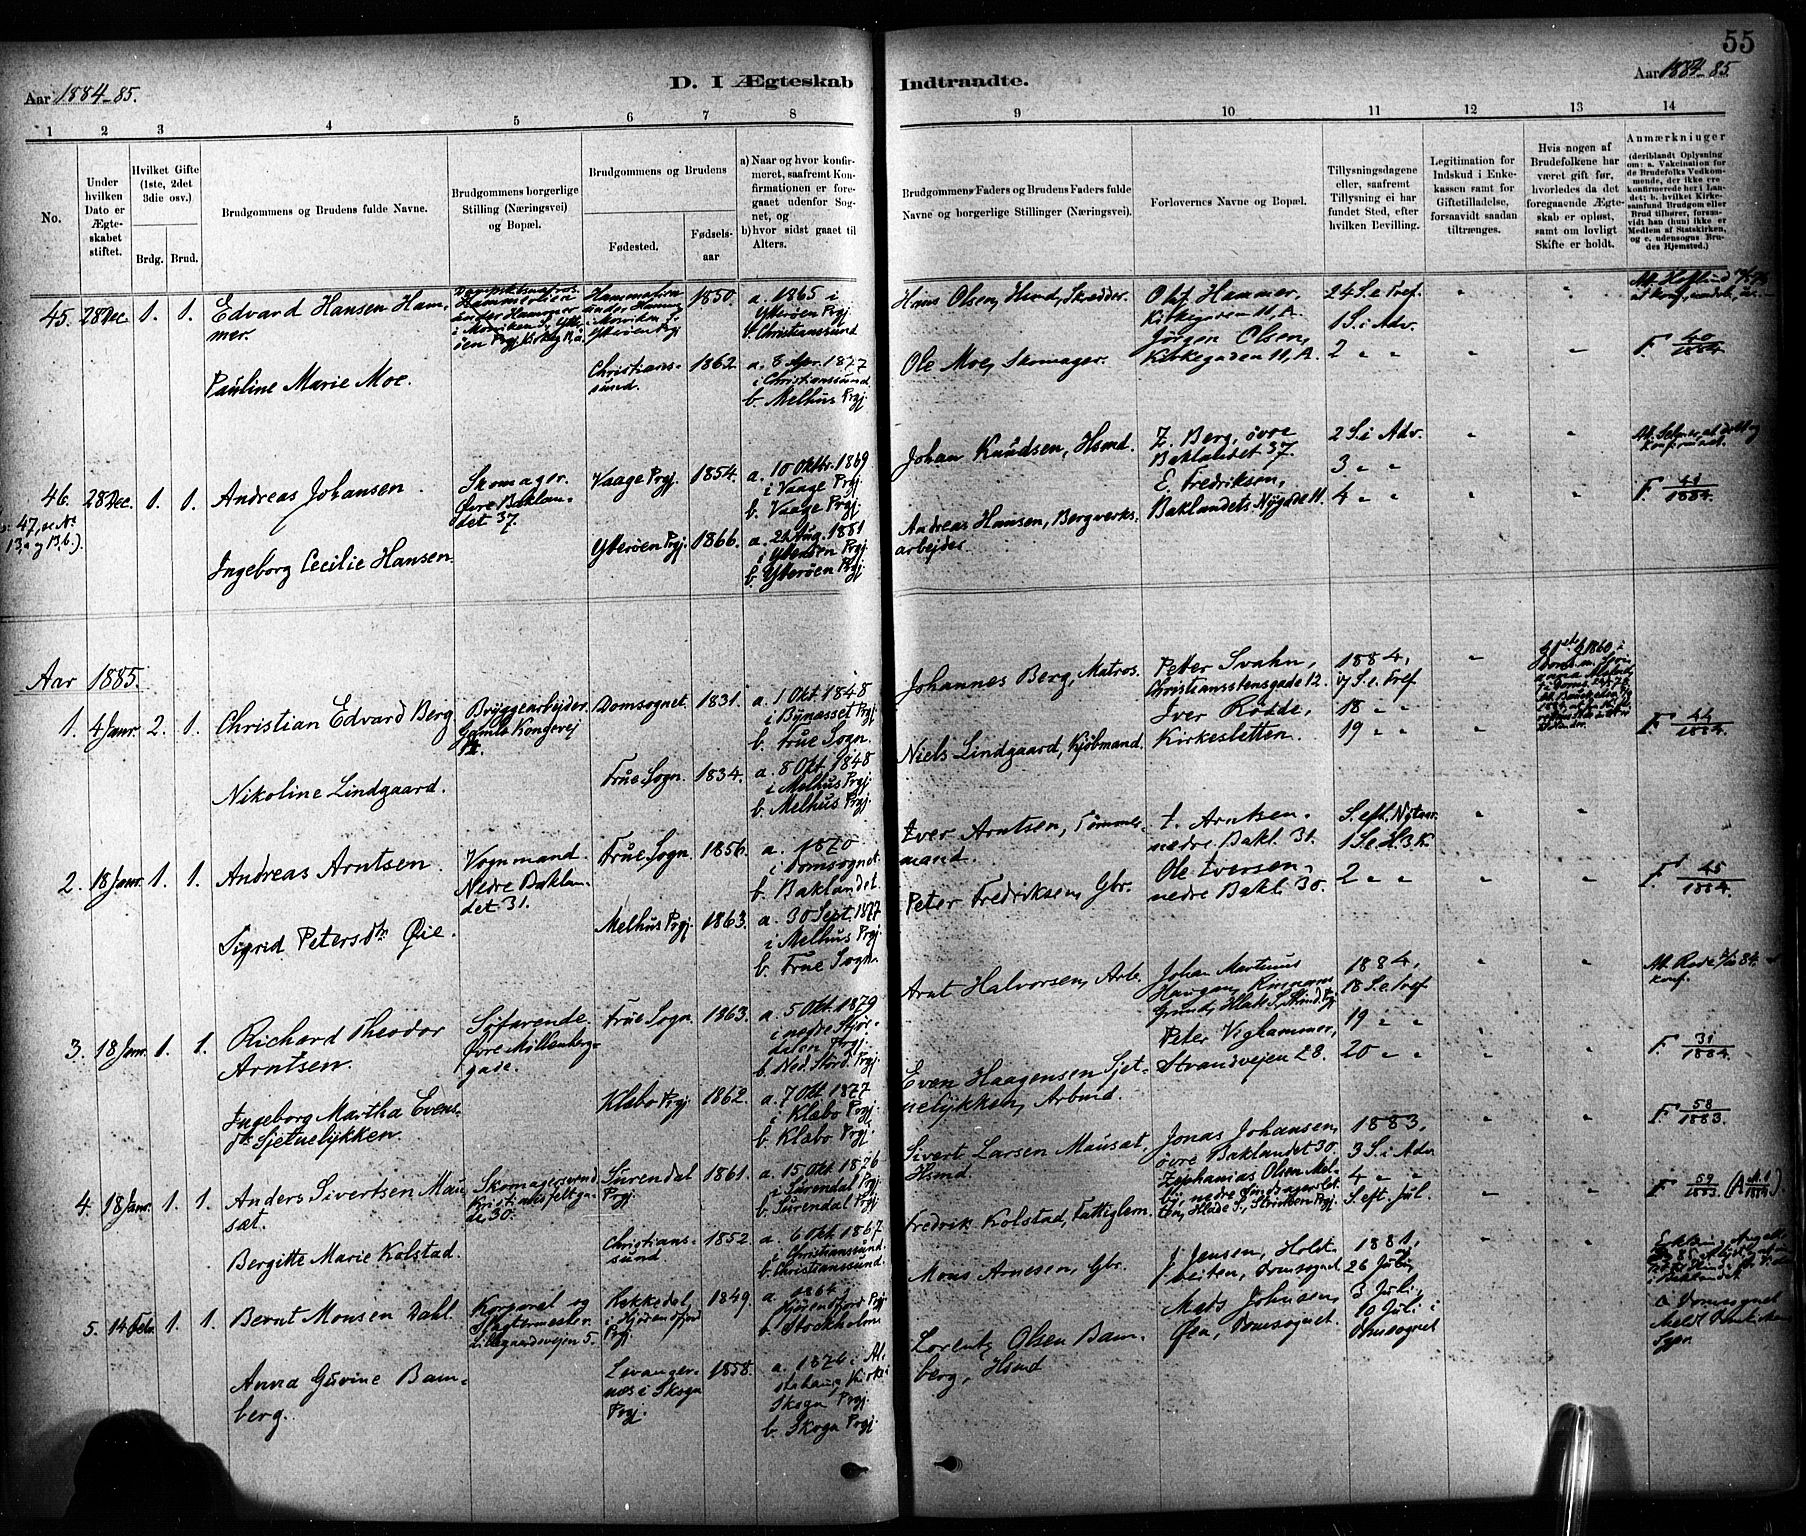 55
Aar 1884-85.
D. I Ægteskab
Indtraadte.
Aar 1884-85.
1 2 3 4 5 6 7 8 9 10 11 12 13 14
No.
Under hvilken Dato er Ægteskabet stiftet.
Hvilket Gifte (1ste, 2det 3die osv.)
Brdg. Brud.
Brudgommens og Brudens fulde Navne.
Brudgommens borgerlige Stilling (Næringsvei) og Bopæl.
Brudgommens og Brudens
Fødested.
Fødselsaar
a) Naar og hvor konfirmeret, saafremt Konfirmationen er foregaaet udenfor Sognet, og
b) hvor sidst gaaet til Alters.
Brudgommens Faders og Brudens Faders fulde Navne og borgerlige Stillinger (Næringsvei).
Forlovernes Navne og Bopæl.
Tillysningsdagene eller, saafremt Tillysning ei har fundet Sted, efter hvilken Bevilling.
Legitimation for Indskud i Enkekassen samt for Giftetilladelse, forsaavidt saadan tiltrænges.
Hvis nogen af Brudefolkene har været gift før, hvorledes da det foregaaende Ægteskab er opløst, samt om lovligt Skifte er holdt.
Anmærkninger
(deriblandt Oplysning om: a. Vakcination for de Brudefolks Vedkommende, der ikke ere konfirmerede her i Landet; b. hvilket Kirkesamfund Brudgom eller Brud tilhører, forsaavidt han (hun) ikke er Medlem af Statskirken, og c. udensogns Brudes Hjemsted.)
45. 28 Dec. 1. 1. Edvard Hansen Hammer.
Hammerlien under Hammer
1850.
a. 1865 i Ytterøen Prgj.
b. Christianssund
Hans Olsen, Hsmd, Skrædder.
Olaf Hammer, Kirkegaden 11, A.
24 S. e. Tref.
1 S. i Adv.
Pauline Marie Moe.
Christianssund.
1862.
a. 8 Apr. 1877 i Christianssund.
b. Melhus Prgj.
Ole Moe, Skomager.
Jörgen Olsen, Kirkegaden 11, A.
2 " "
F. 40/1884.
46. 28 Dec. 1. 1. Andreas Johansen.
Skomager. Øvre Baklandet 37.
Vaage Prgj. 1854.
a. 10 Oktbr. 1869 i Vaage Prgj.
b. Vaage Prgj.
Johan Knudsen, Hsmd.
Z. Berg, øvre Baklandet 37.
2 S. i Adv.
3 " "
Ingeborg Cecilie Hansen.
Ytterøen Prgj. 1866.
a. 21 Aug. 1881 i Ytterøen Prgj.
b. Ytterøen Prgj.
Andreas Hansen, Bergverksarbejder.
E. Fredriksen, Baklandets Nygade 11.
4 " "
F. 41/1884.
Aar 1885.
1. 4 Janr. 2. 1. Christian Edvard Berg
Bryggearbejder Gamle Kongevej
Domsognet. 1831.
a. 1 Okt 1848 i Bynæsset Prgj.
b. Frue Sogn.
Johannes Berg, Matros.
Petter Svahn, Christianstensgade 12.
1884,
17 S. e. Tref
18 " "
19 " "
Nikoline Lindgaard.
Frue Sogn. 1834.
a. 8 Okt. 1848 i Melhus Prgj.
b. Melhus Prgj.
Niels Lindgaard, Kjöbmand.
Iver Rödde, Kirkesletten.
F. 44/1884.
2. 18 Janr. 1. 1. Andreas Arntsen.
Vognmand. Nedre Baklandet 31.
Frue Sogn 1856.
a. 1870 i Domsognet.
b. Baklandet.
Iver Arntsen, Tömmermand.
I. Arntsen. nedre Bakl. 31.
S. eft. Nytaar.
1 S. e. H. 3 K.
2 " "
Sigrid Petersdtr Øie.
Melhus Prgj. 1863.
a. 30 Sept. 1877 i Melhus Prgj.
b. Frue Sogn.
Peter Fredriksen, Gbr.
Ole Iversen, nedre Bakl. 30.
F. 45/1884.
3. 18 Janr. 1. 1. Richard Theodor Arntsen.
Sjöfarende. Øvre Möllenberggade.
Frue Sogn. 1863.
a. 5 Okt. 1879 i nedre Stjördalen Prgj.
b. Ned. Störd. Prgj.
Arnt Halvorsen, Arb.
Johan Martinus Haugan,
1884,
18 S. e. Tref
19 " "
20 " "
Ingeborg Martha Evensdtr Sjetnelykken.
Klæbo Prgj. 1862.
a. 7 Okt 1877 i Klæbo Prgj.
b. Klæbo Prgj.
Even Haagensen Sjetnelykken, Arbmd.
Peter Vighammer, Strandvejen 28.
F. 31/1884.
F. 58/1883
4. 18 Janr. 1. 1. Anders Sivertsen Mausæt.
Skomagersvend Kristiansfeltgade 30.
Surendal Prgj. 1861.
a. 15 Okt. 1876 i Surendal Prgj.
b. Surendal Prgj.
Sivert Larsen Mausat, Hsmd.
Jonas Johansen, øvre Baklandet 30.
1883,
3 S. i Adv
4 " "
S. eft. Jul.
Bergitte Marie Kolstad.
Christianssund 1852.
a. 6 Okt. 1867 i Christianssund.
b. Christianssund.
Fredrik Kolstad, Fattiglem.
Zephanias Olsen
F 59/1883
5. 14 Febr. 1. 1. Bernt Monsen Dahl.
Korporal og
Lillegaardsvejen 5.
1849.
a. 1864 i Hjörendfjord Prgj.
b. Stockholm
Mons Arnesen, Gbr.
J. Jensen, Holtbeiten, Domsognet
1881,
26 Juli,
3 Juli,
10 Juli i Domsognet
Anna Guvine Bamberg.
Levangernæs i Skogn Prgj.
1858.
a. 1876 i Alstahaug Kirke i Skogn Prgj.
b. Skogn Prgj.
Lorents Olsen Bamberg, Hsmd
Mats Johnsen, Øen, Domsognet.